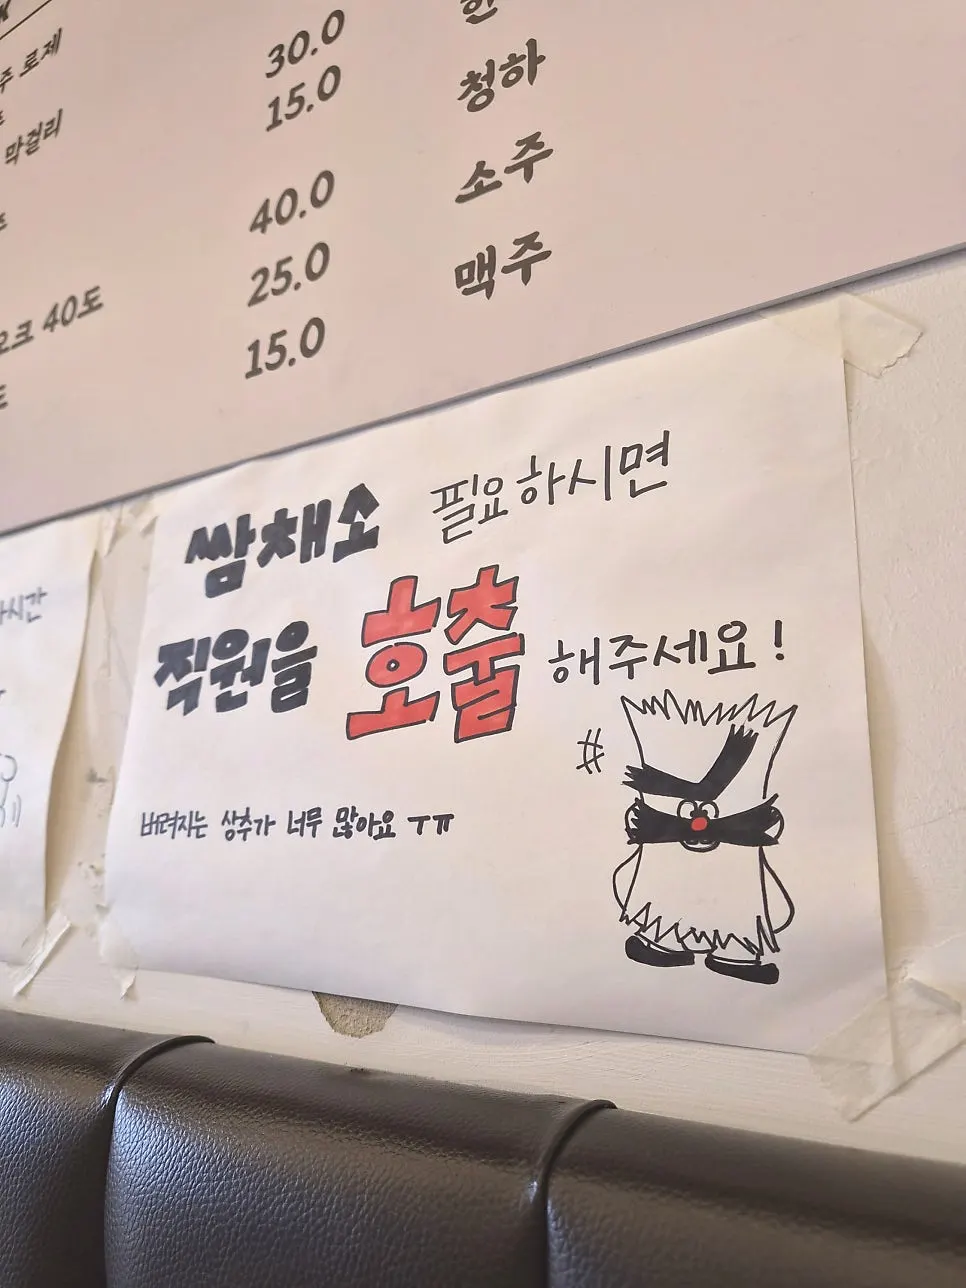 주 로제
30.0
막걸리
15.0
청하
40.0
소주
25.0
맥주
40도
15.0
쌈채소 필요하시면
직원을 호출 해주세요!
버려지는 상추가 너무 많아요 ㅜㅠ